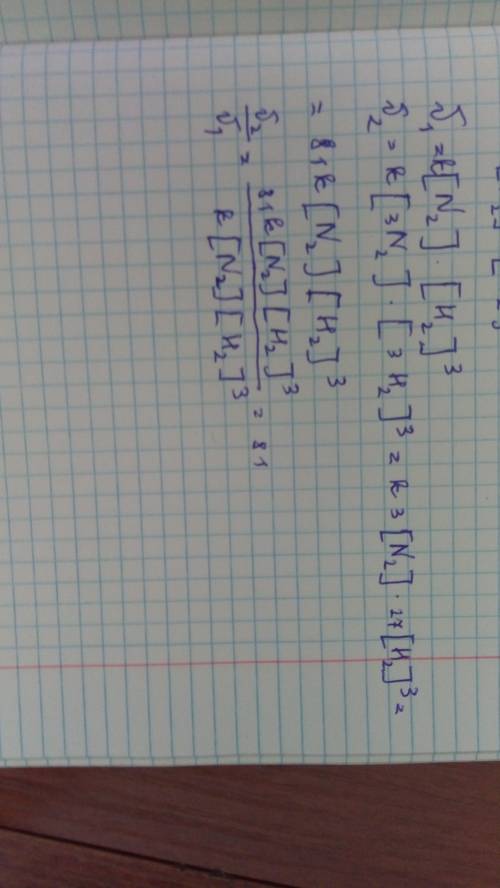 v₁ = k[N₂] · [H₂]³
v₂ = k[3N₂] · [3H₂]³ = k 3[N₂] · 27[H₂]³ =
= 81k[N₂][H₂]³
v₂/v₁ = 81k[N₂][H₂]³ / k[N₂][H₂]³ = 81